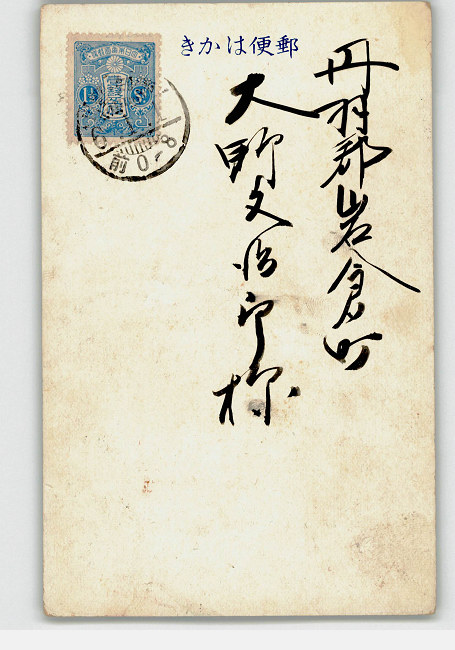 きかは便郵
丹羽郡岩倉町
大野文治郎様
1½ Sn
前0-8